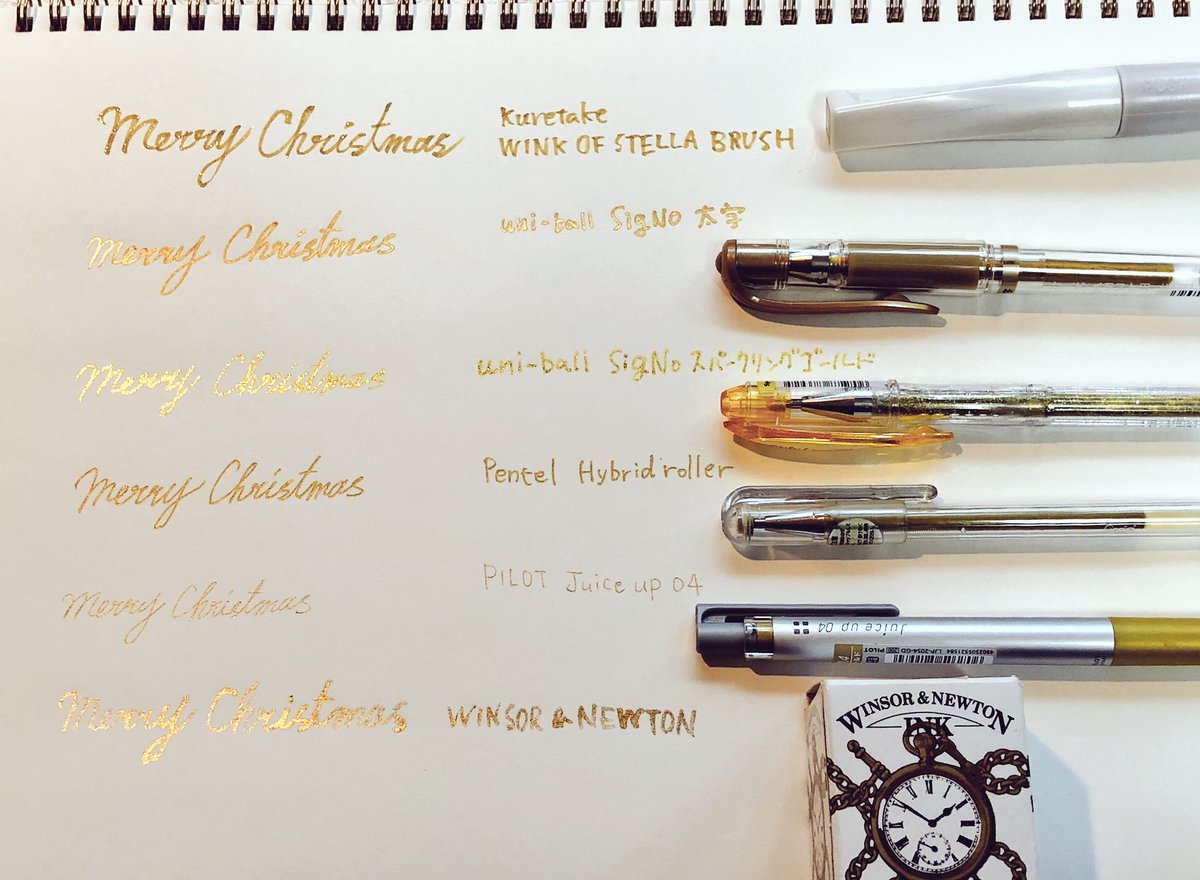 Merry Christmas
Kuretake
WINK OF STELLA BRUSH
Merry Christmas
uni-ball SigNo 太字
Merry Christmas
uni-ball SigNo スパークリングゴールド
Merry Christmas
Pentel Hybrid roller
Merry Christmas
PILOT Juice up 04
Juice up 04
4902505521584 LJP-20S4-GD PILOT
Merry Christmas
WINSOR & NEWTON
WINSOR & NEWTON
INK